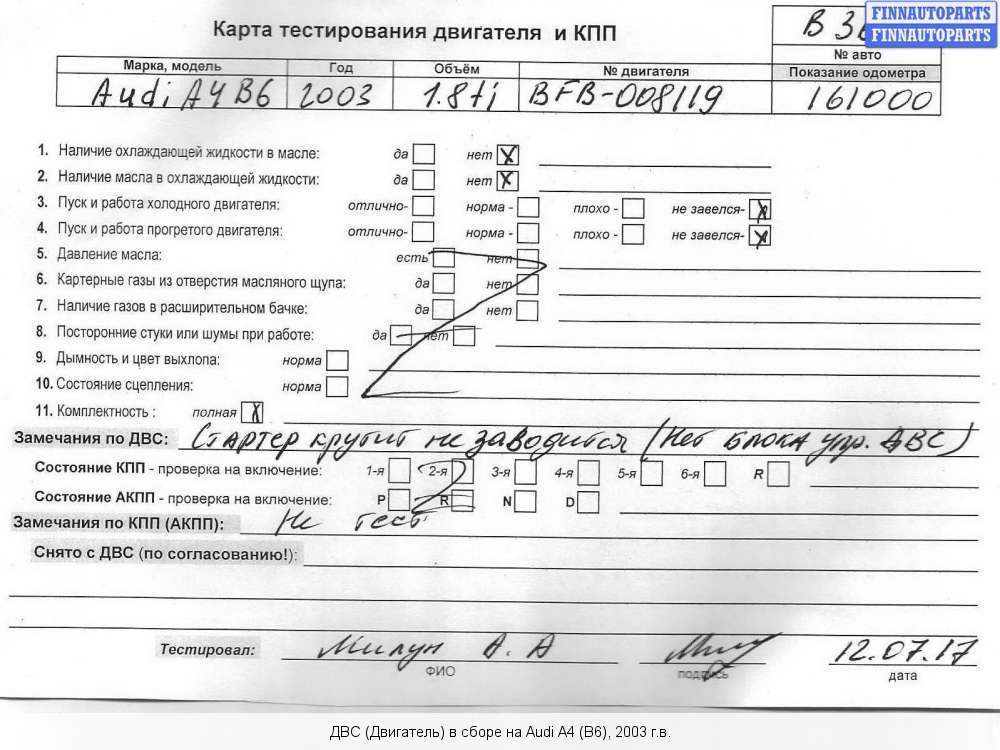 FINNAUTOPARTS
FINNAUTOPARTS
Карта тестирования двигателя и КПП
№ авто
Марка, модель Год Объём № двигателя Показание одометра
Audi A4 B6 2003 1.8ti BFB-008119 161000
1. Наличие охлаждающей жидкости в масле: да нет X
2. Наличие масла в охлаждающей жидкости: да нет X
3. Пуск и работа холодного двигателя: отлично- норма - плохо - не завелся- X
4. Пуск и работа прогретого двигателя: отлично- норма - плохо - не завелся- X
5. Давление масла: есть нет
6. Картерные газы из отверстия масляного щупа: да нет
7. Наличие газов в расширительном бачке: да нет
8. Посторонние стуки или шумы при работе: да нет
9. Дымность и цвет выхлопа: норма
10. Состояние сцепления: норма
11. Комплектность : полная X
Замечания по ДВС: Стартер крутит не заводится (Нет блока упр. ДВС)
Состояние КПП - проверка на включение: 1-я 2-я 3-я 4-я 5-я 6-я R
Состояние АКПП - проверка на включение: P R N D
Замечания по КПП (АКПП): Не тест
Снято с ДВС (по согласованию!):
Тестировал: Милун А. А 12.07.17
ФИО подпись дата
ДВС (Двигатель) в сборе на Audi A4 (B6), 2003 г.в.